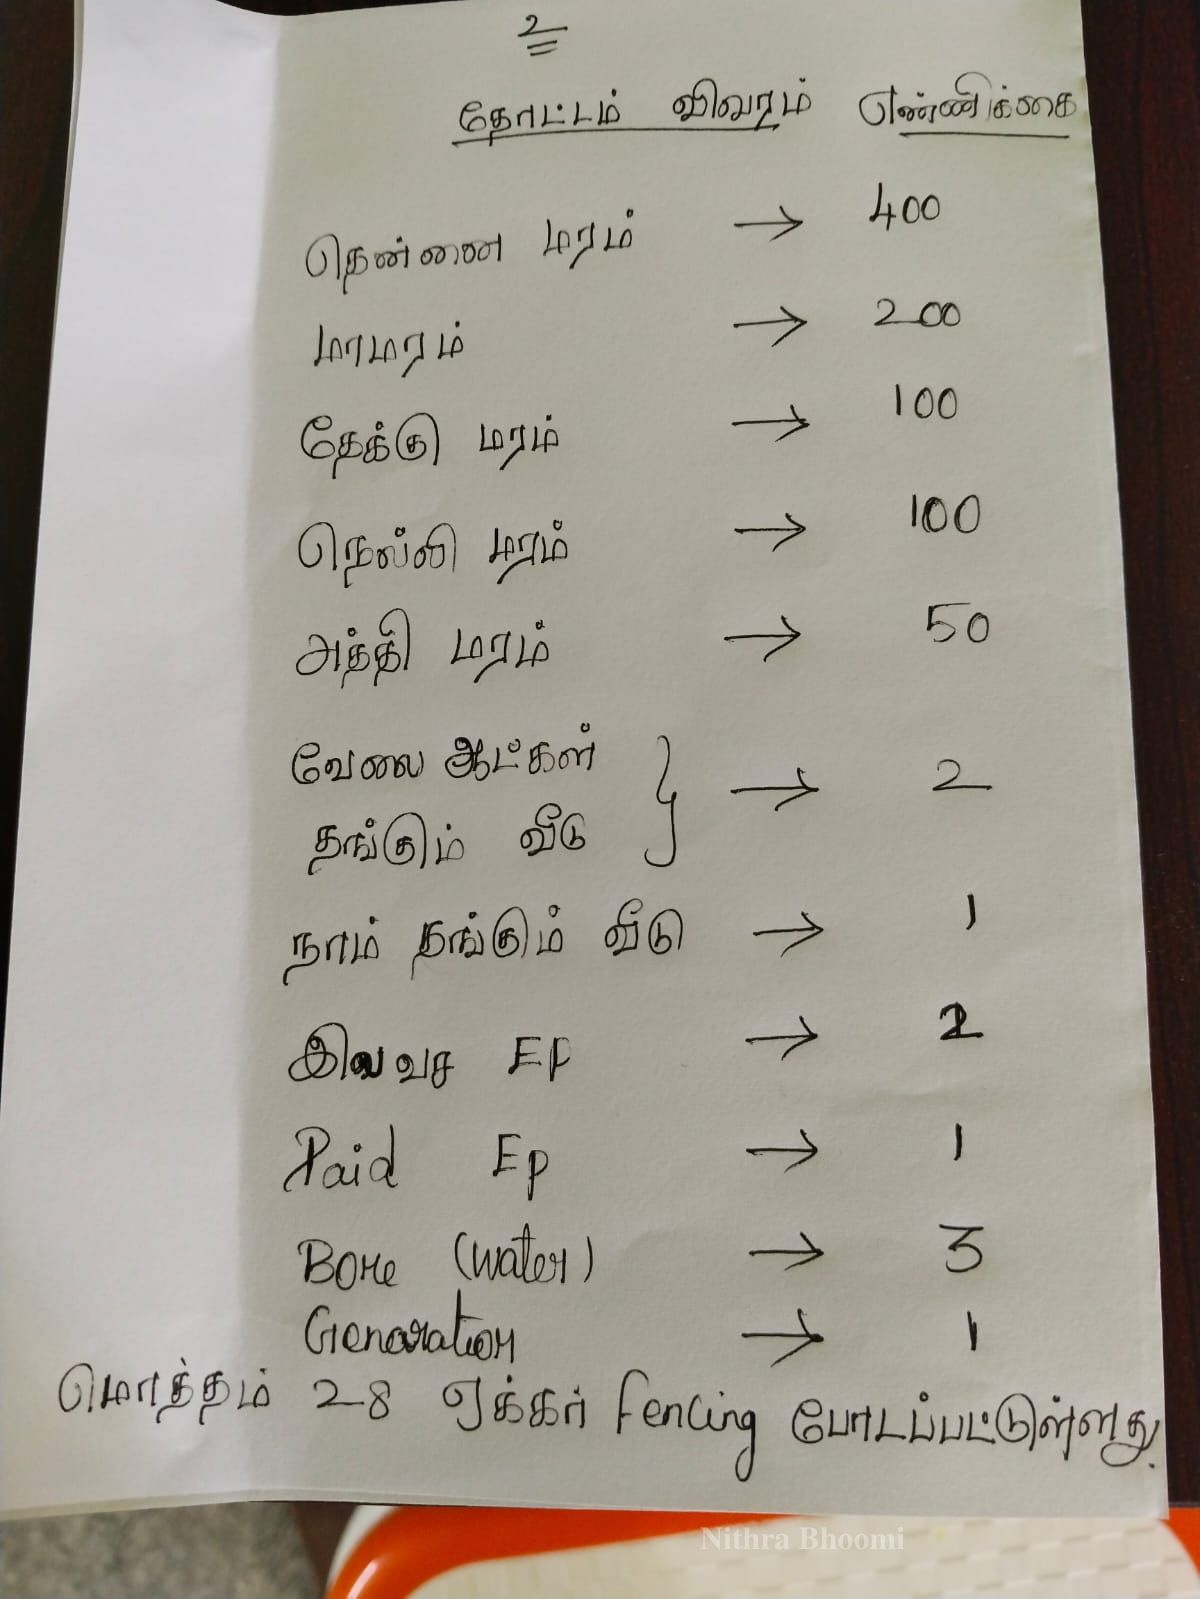 2
தோட்டம் விவரம் எண்ணிக்கை
தென்னை மரம் → 400
மாமரம் → 200
தேக்கு மரம் → 100
நெல்லி மரம் → 100
அத்தி மரம் → 50
வேலை ஆட்கள்
தங்கும் வீடு } → 2
நாம் தங்கும் வீடு → 1
இலவச EP → 2
Paid Ep → 1
Bore (water) → 3
Genaration → 1
மொத்தம் 28 ஏக்கர் Fencing போடப்பட்டுள்ளது.
Nithra Bhoomi